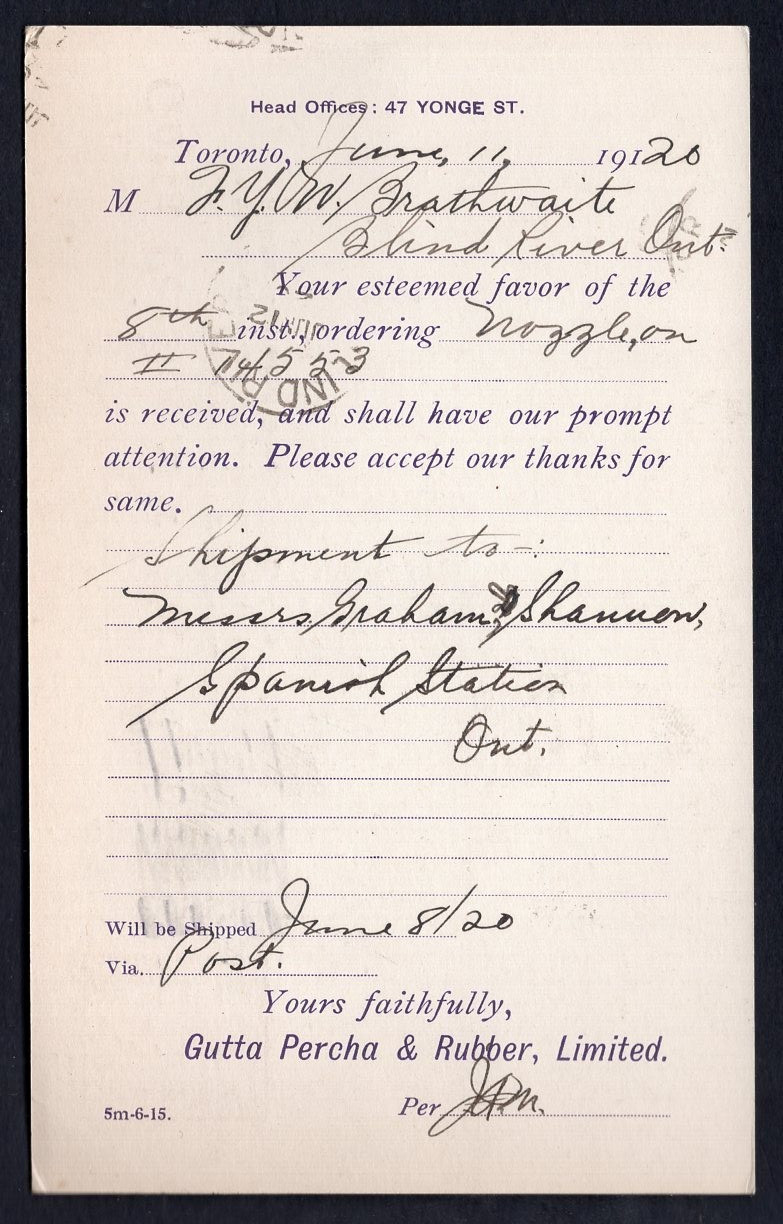 Head Offices: 47 YONGE ST.
Toronto, June, 11, 19120
M F. Y. W. Brathwaite
Blind River Ont.
Your esteemed favor of the
8th inst., ordering Nozzle, on
II 74553
is received, and shall have our prompt
attention. Please accept our thanks for
same.
Shipment to-:
Messrs Graham, & Shannon,
Spanish Station
Ont.
Will be Shipped June 8/20
Via. Post.
Yours faithfully,
Gutta Percha & Rubber, Limited.
5m-6-15. Per